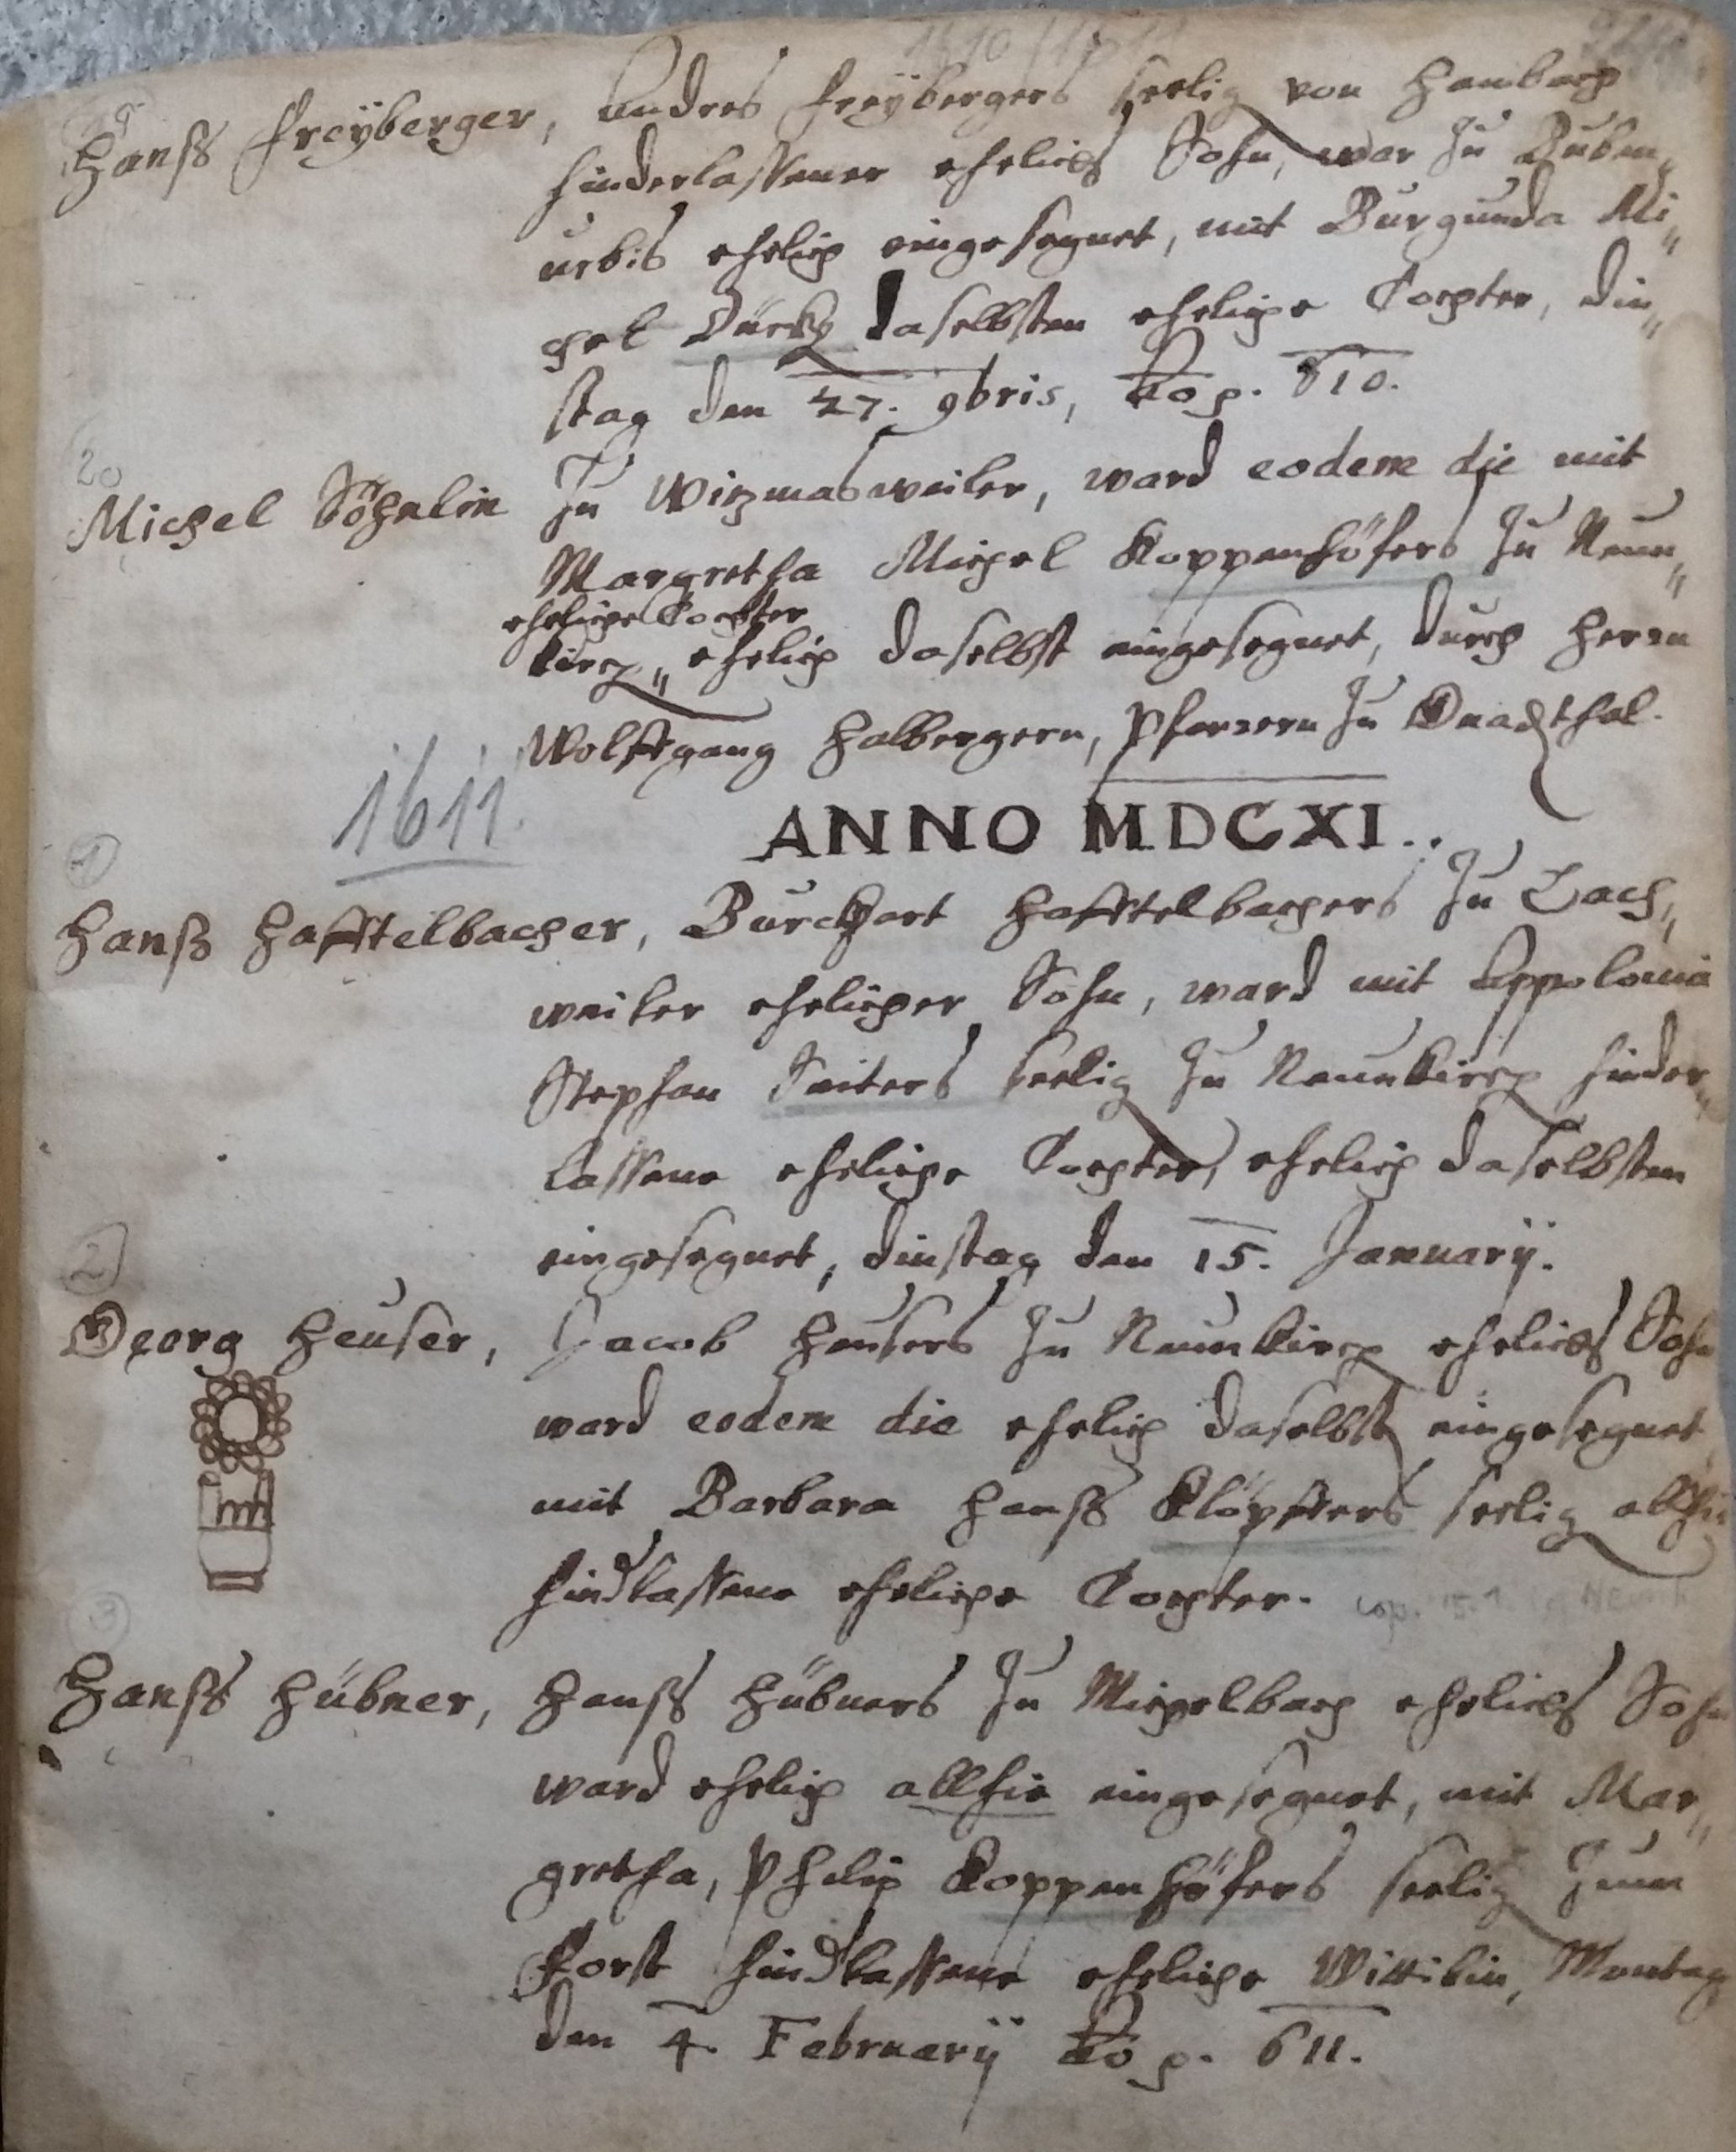 1610/1611
19
Hanß Freÿberger, Andres Freÿbergers seelig von Hambach
hinderlassener ehelichs Sohn, war zu Buben„
urbis ehelich eingesegnet, mit Burgunda Mi„
chel Dürdaselbsten eheliche Tochter, din„
stag den 27. 9bris, Ao p. 610.
20
Michel Söhnlin zu Wizmasweiler, ward eodem die mit
Margretha Michel Koppenhöfers zu Neun„
eheliche Tochter
kirch„ ehelich daselbst eingesegnet, durch Herrn
Wolffgang Halbergern, Pfarrern zu Gnadthal.
1611.
ANNO MDCXI..
1
Hanß Hafftelbacher, Burckhart Hafftelbachers zu Lach„
weiler ehelicher Sohn, ward mit Appolonia
Stephan Suiters seelig zu Neunkirch hinder„
lassene eheliche Tochter, ehelich daselbsten
eingesegnet, dinstag den 15. Januarÿ.
2
Georg Heuser, Jacob Heusers zu Neunkirch ehelichs Sohn
ward eodem die ehelich daselbst eingesegnet
mit Barbara Hanß Klöpffers seelig allhie
hindlassene eheliche Tochter. cop. 15.1.
3
Hanß Hübner, Hanß Hübners zu Michelbach ehelichs Sohn
ward ehelich allhie eingesegnet, mit Mar„
gretha, Philip Koppenhöfers seelig zum
Forst hindlassene eheliche Wittibin, Montag
den 4. Februarÿ Ao p. 611.